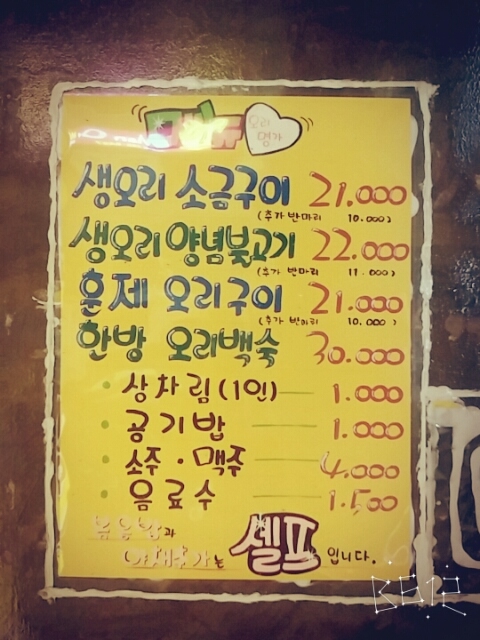 메뉴 오리
명가
생오리 소금구이 21.000
(추가 반마리 10.000)
생오리 양념불고기 22.000
(추가 반마리 11.000)
훈제 오리구이 21.000
(추가 반마리 10.000)
한방 오리백숙 30.000
• 상차림(1인) 1.000
• 공기밥 1.000
• 소주 · 맥주 4.000
• 음료수 1.500
볶음밥과
야채추가는 셀프입니다.